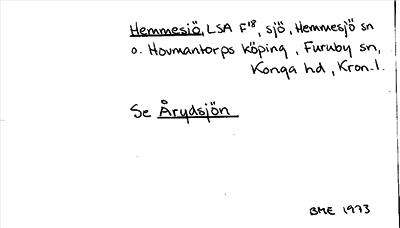 Hemmesjö, LSA F¹⁸, sjö, Hemmesjö sn
o. Hovmantorps köping, Furuby sn,
Konga hd, Kron.l.
Se Årydsjön
BME 1973